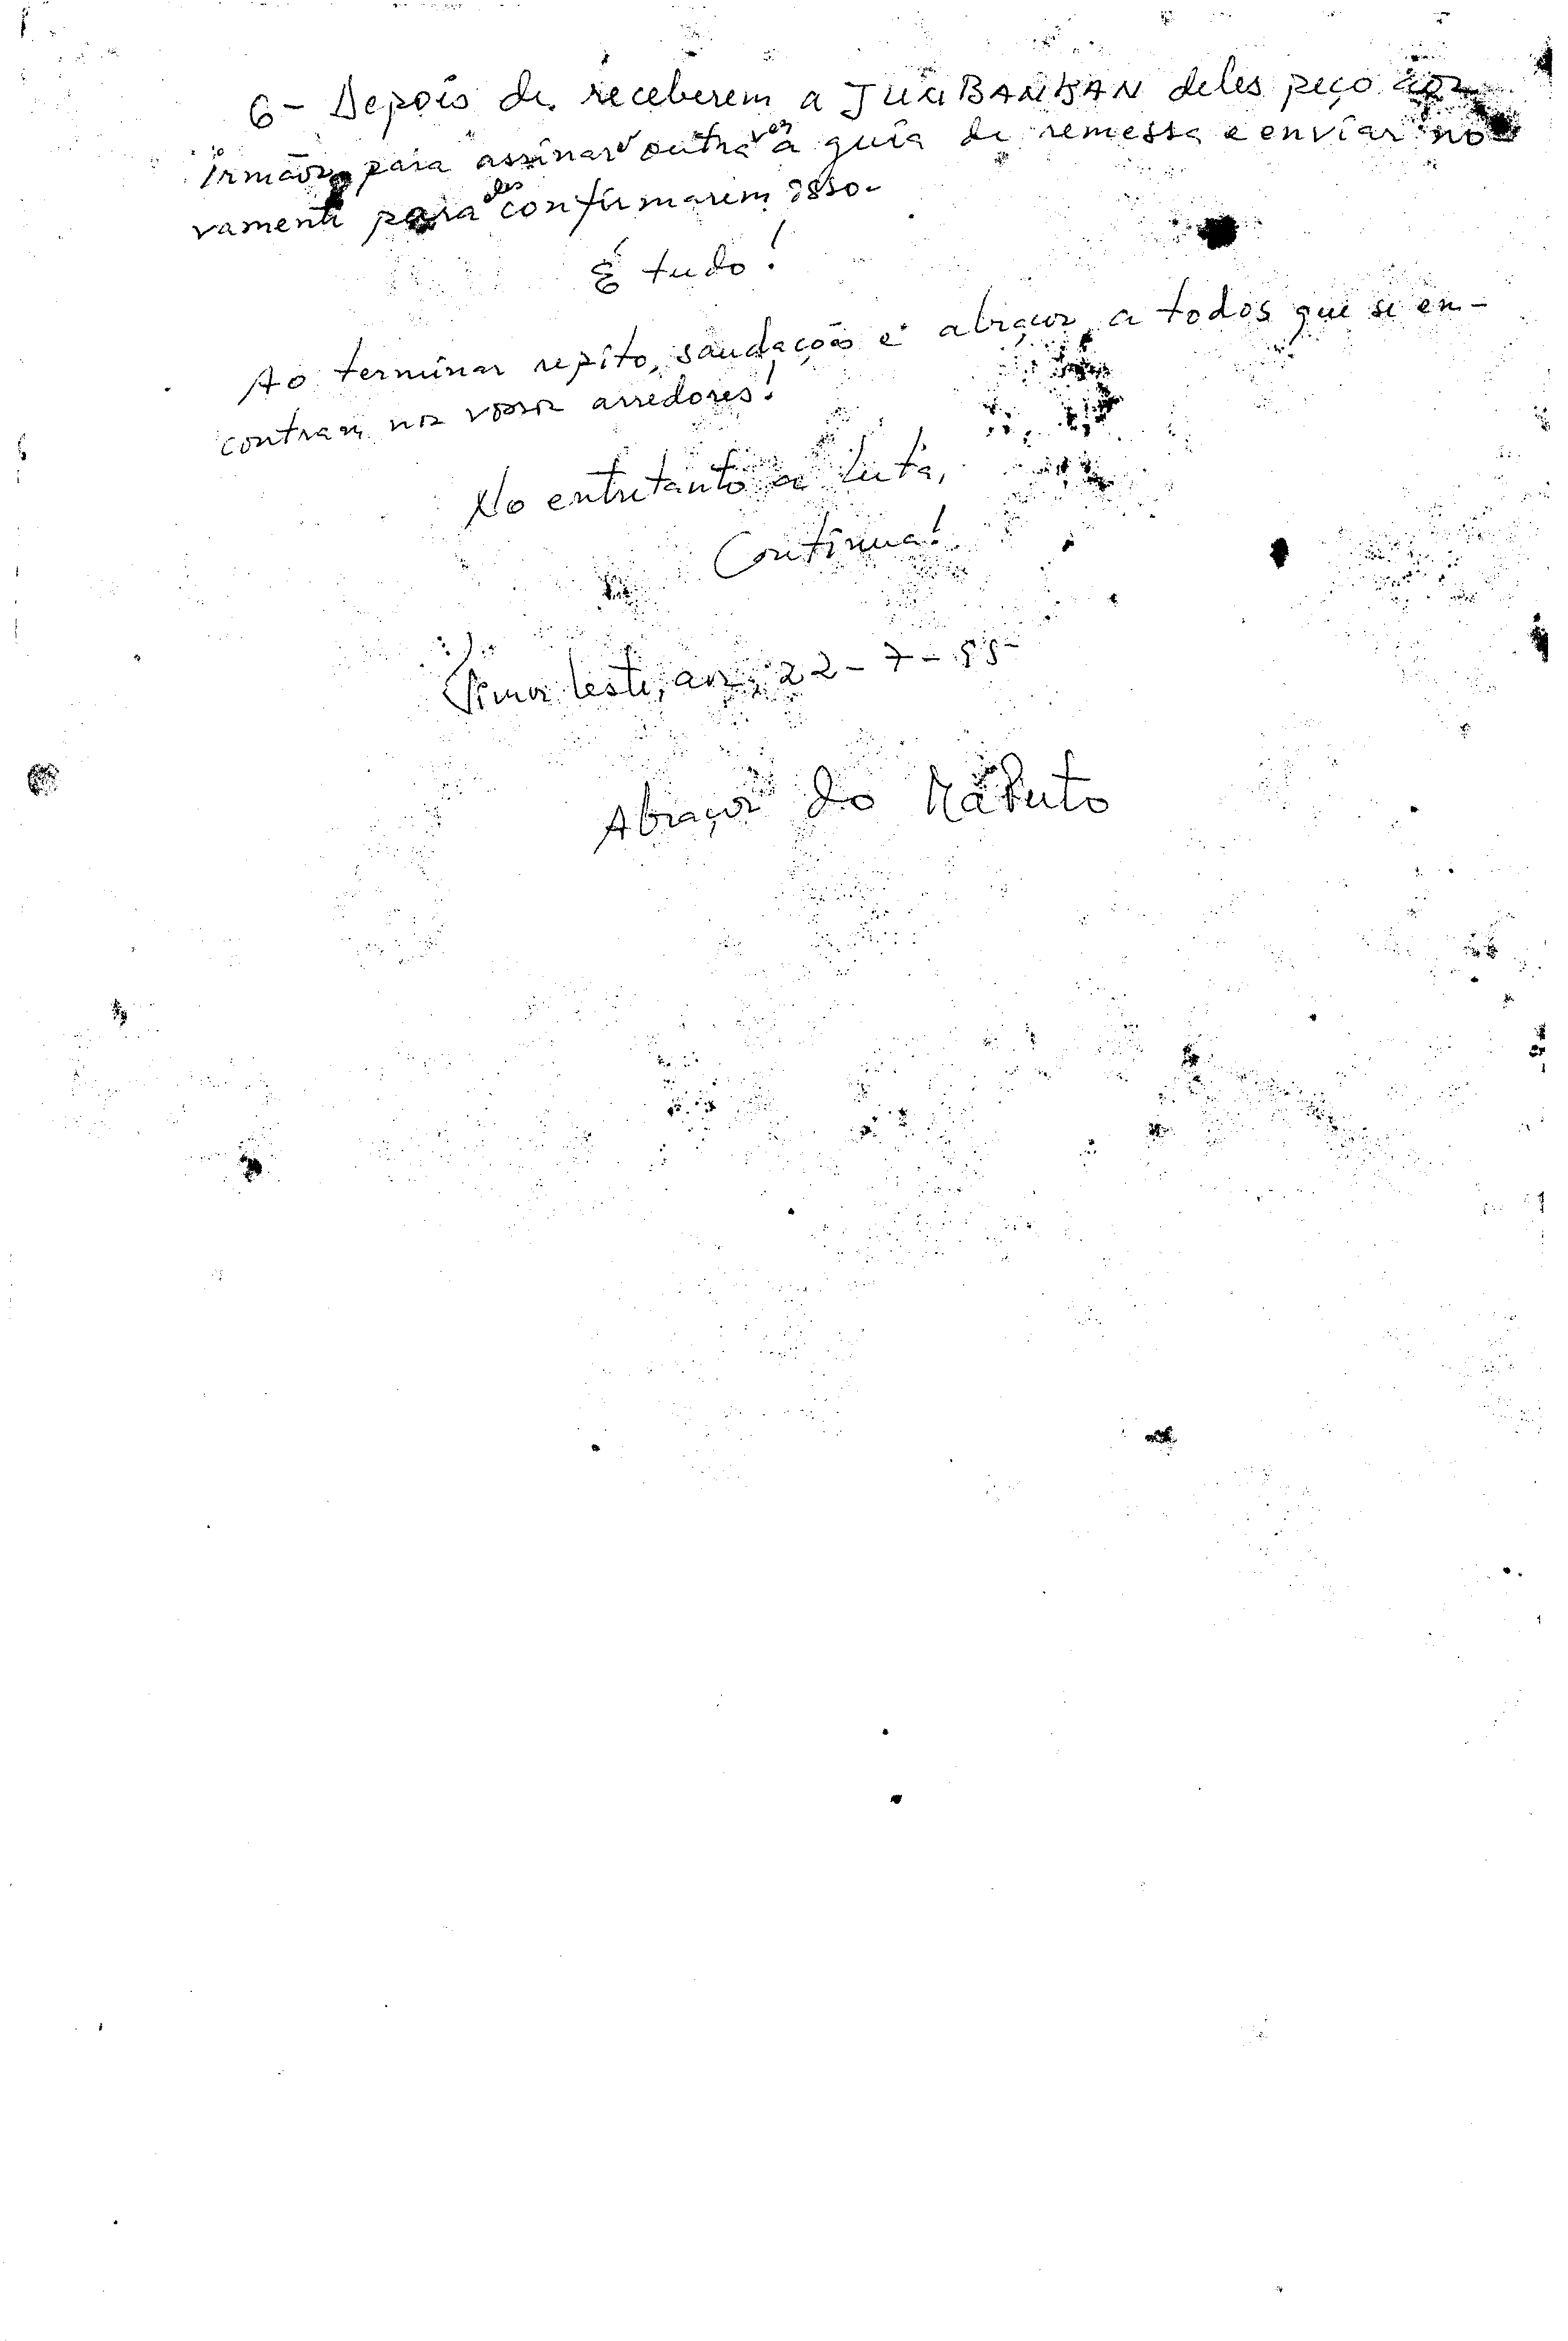 6- Depois de receberem a JUMBANKAN deles peço aos
irmãos para assinar outra vez a guia de remessa e enviar no
vamente para eles confirmarem isso.
É tudo!
Ao terminar repito, saudação e abraços a todos que se en-
contram nos vossos arredores!
No entretanto a luta,
Continua!
Timor Leste, aos, 22-7-95
Abraços do MáPuto